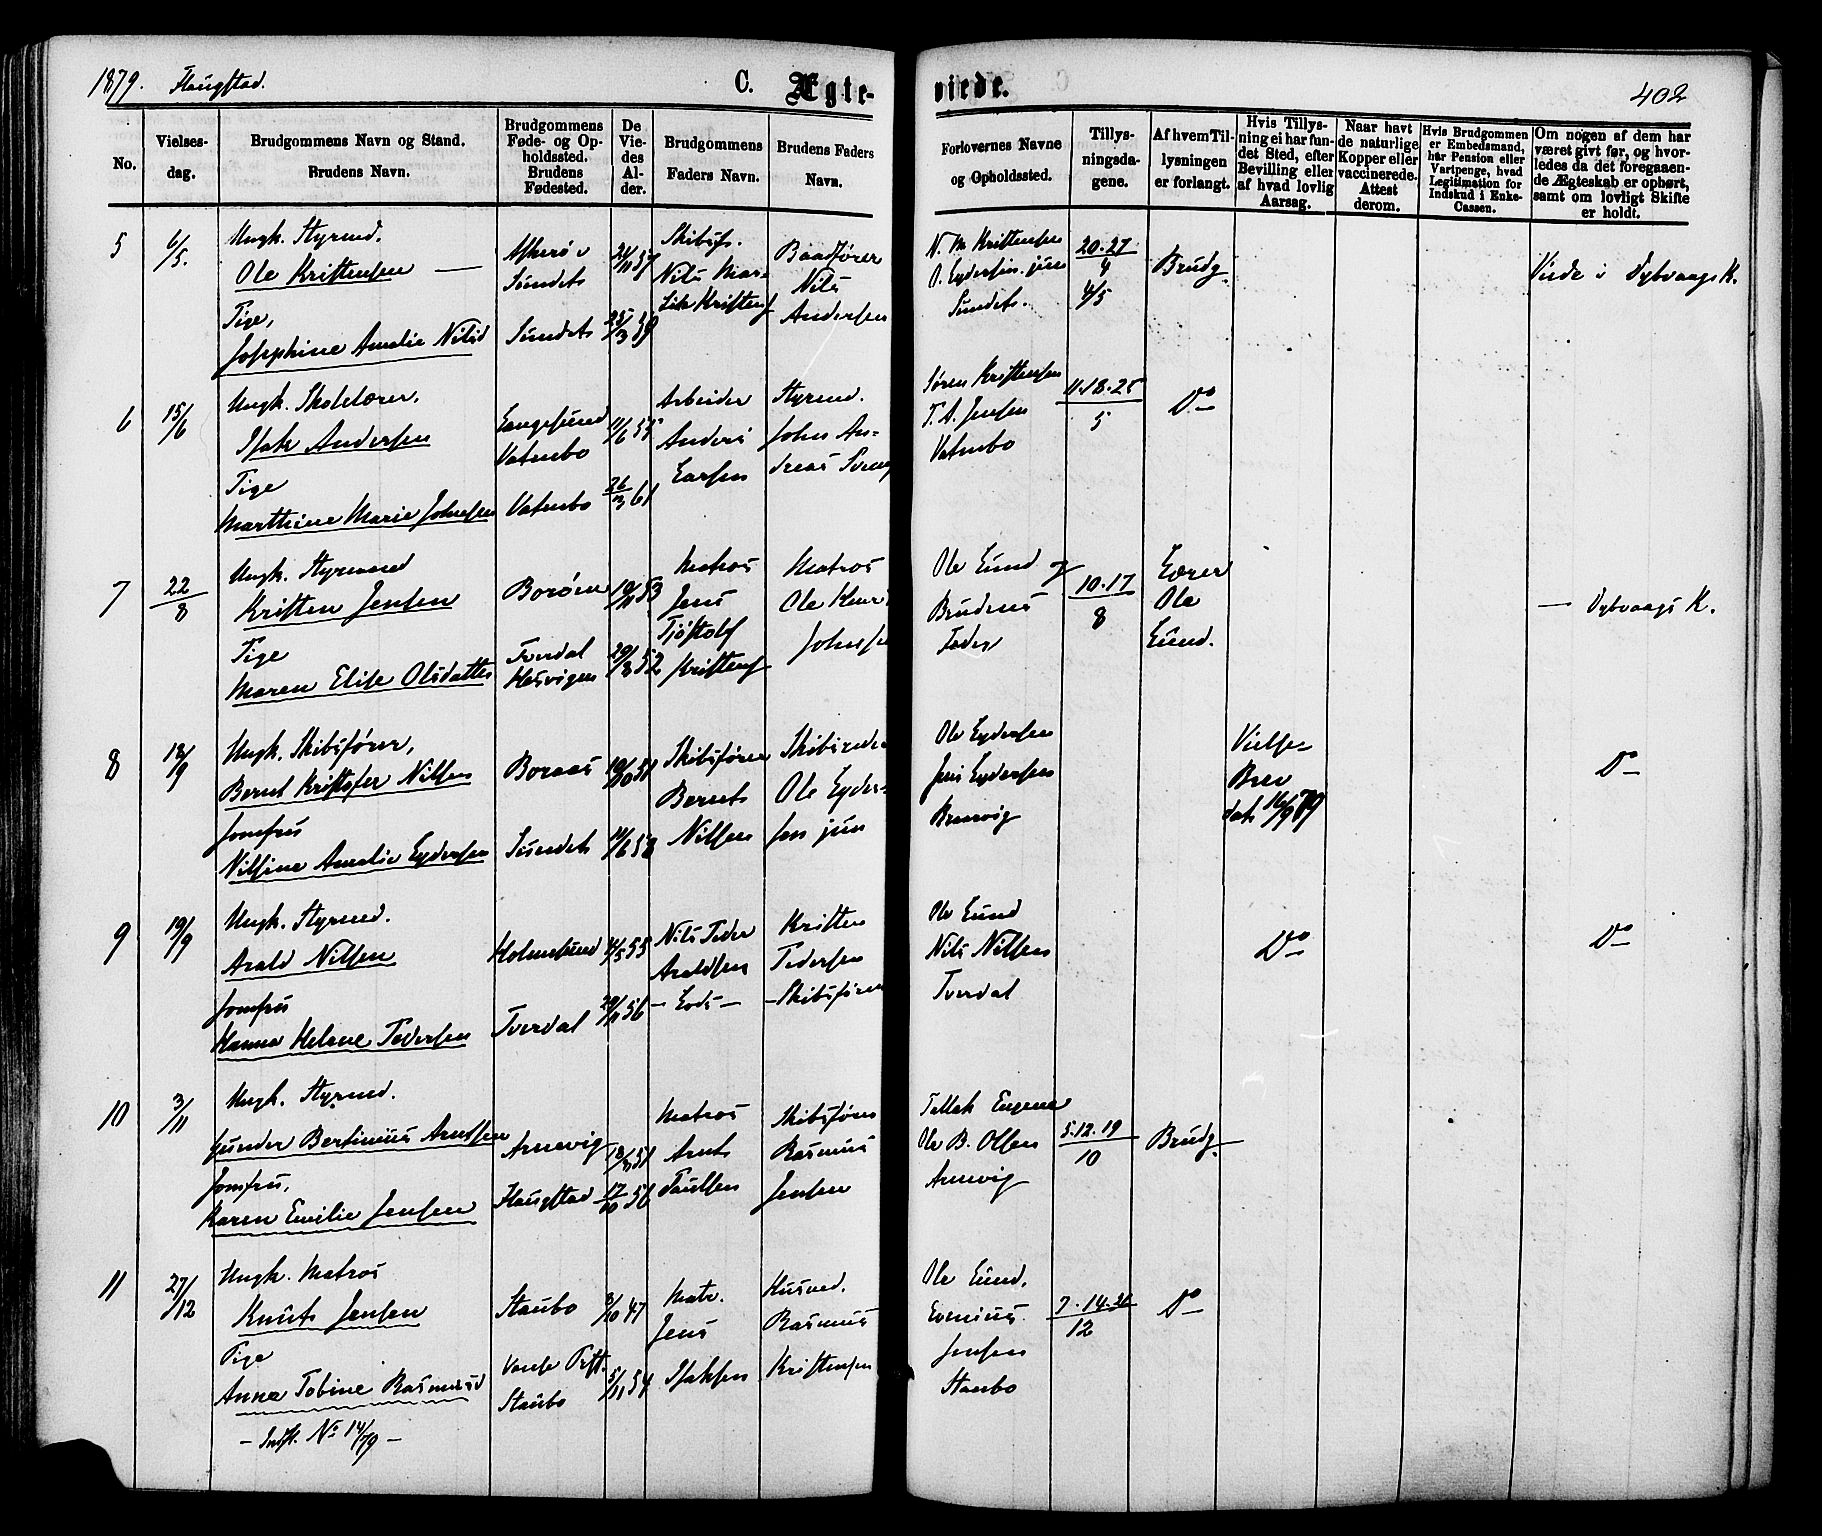 1879. Flangstad.
C. Ægte-
viede.
402
No.
Vielses-
dag.
Brudgommens Navn og Stand.
Brudens Navn.
Brudgommens
Føde- og Op-
holdssted.
Brudens
Fødested.
De
Vie-
des
Al-
der.
Brudgommens
Faders Navn.
Brudens Faders
Navn.
Forlovernes Navne
og Opholdssted.
Tillys-
ningsda-
gene.
Af hvem Til-
lysningen
er forlangt.
Hvis Tillys-
ning ei har fun-
det Sted, efter
Bevilling eller
af hvad lovlig
Aarsag.
Naar havt
de naturlige
Kopper eller
vaccinerede.
Attest
derom.
Hvis Brudgommen
er Embedsmand,
har Pension eller
Vartpenge, hvad
Legitimation for
Indskud i Enke-
Cassen.
Om nogen af dem har
været givt før, og hvor-
ledes da det foregaaen-
de Ægteskab er ophørt,
samt om lovligt Skifte
er holdt.
5
6/5.
Ungk. Styrmd.
Ole Kristensen —
Pige,
Josephine Amalie Nilsd
Askerø v
Sundet
Sundet
24/11 57
25/3 59
Skibsf.
Nils Mar-
Kristens
Baadfører
Nils
Andersen
N. M Kristensen
O. Eydersen. jun
Sundet.
20.27
4
4/5
Brudg.
Viede i Dybvaags K.
6
15/6
Ungk. Skolelærer,
Isak Andersen
Pige
Marthine Marie Johnsen
Langesund
Vatnbo
Vatnbo
11/6 55
26/3 61
Arbeider
Anders
Larsen
Styrmd.
John An-
dreas
Søren Kristensen
T. A. Jensen
Vatnbo
11.18.25
5
Do
7
22
8
Ungk. Styrmand
Kristen Jensen
Pige
Maren Elise Olsdatter
Borøen
Tverdal
Hesvigen
19/11 53
29/8 52
Matros
Jens
Tjøstolf
Kristens
Matros
Ole Knut
Johnsen
Ole Lund
Brudens
Fader
10.17
8
Lærer
Ole
Lund.
— Dybvaags K.
8
18/9
Ungk. Skibsfører,
Bernt Kristofer Nilsen
Jomfru
Nilsine Amalie Eydersen
Boraas
Sundet
19/10 51
11/6 58
Skibsfører
Bernt
Nilsen
Skibsreder
Ole Eyder-
sen jun
Ole Eydersen
Jens Eydersen
Vielse-
Brev
dat. 16/9 79
Do
9
19/9
Ungk. Styrmd.
Arald Nilsen
Jomfru
Hanna Helene Pedersen
Holmesund
Tverdal
4/5 55
29/11 56
Nils Peder
Araldsen
— Lods —
Kristen
Pedersen
— Skibsfører
Ole Lund
Nils Nilsen
Tverdal
Do
Do
10
3/11
Ungk. Styrmd.
Gunder Bertinius Arntsen
Jomfru,
Karen Emilie Jensen
Arnevig
Flangstad
51
17/10 56
Matros
Arnt
Paulsen
Skibsfører
Rasmus
Jensen
Tellak Eugene
Ole B. Olsen
Arnevig
5.12.19
10
Brudg.
11
27/12
Ungk. Matros
Knut Jensen
Pige
Anna Tobine Rasmusd
— Indfl. No 14/79 —
Staubo
Vanse Prst.
Staubo
8/10 47
5/11 54
Matr.
Jens
Isaksen
Husmd.
Rasmus
Kristensen
Ole Lund,
Evenius
Jensen
Staubo
7.14.21
12
Do